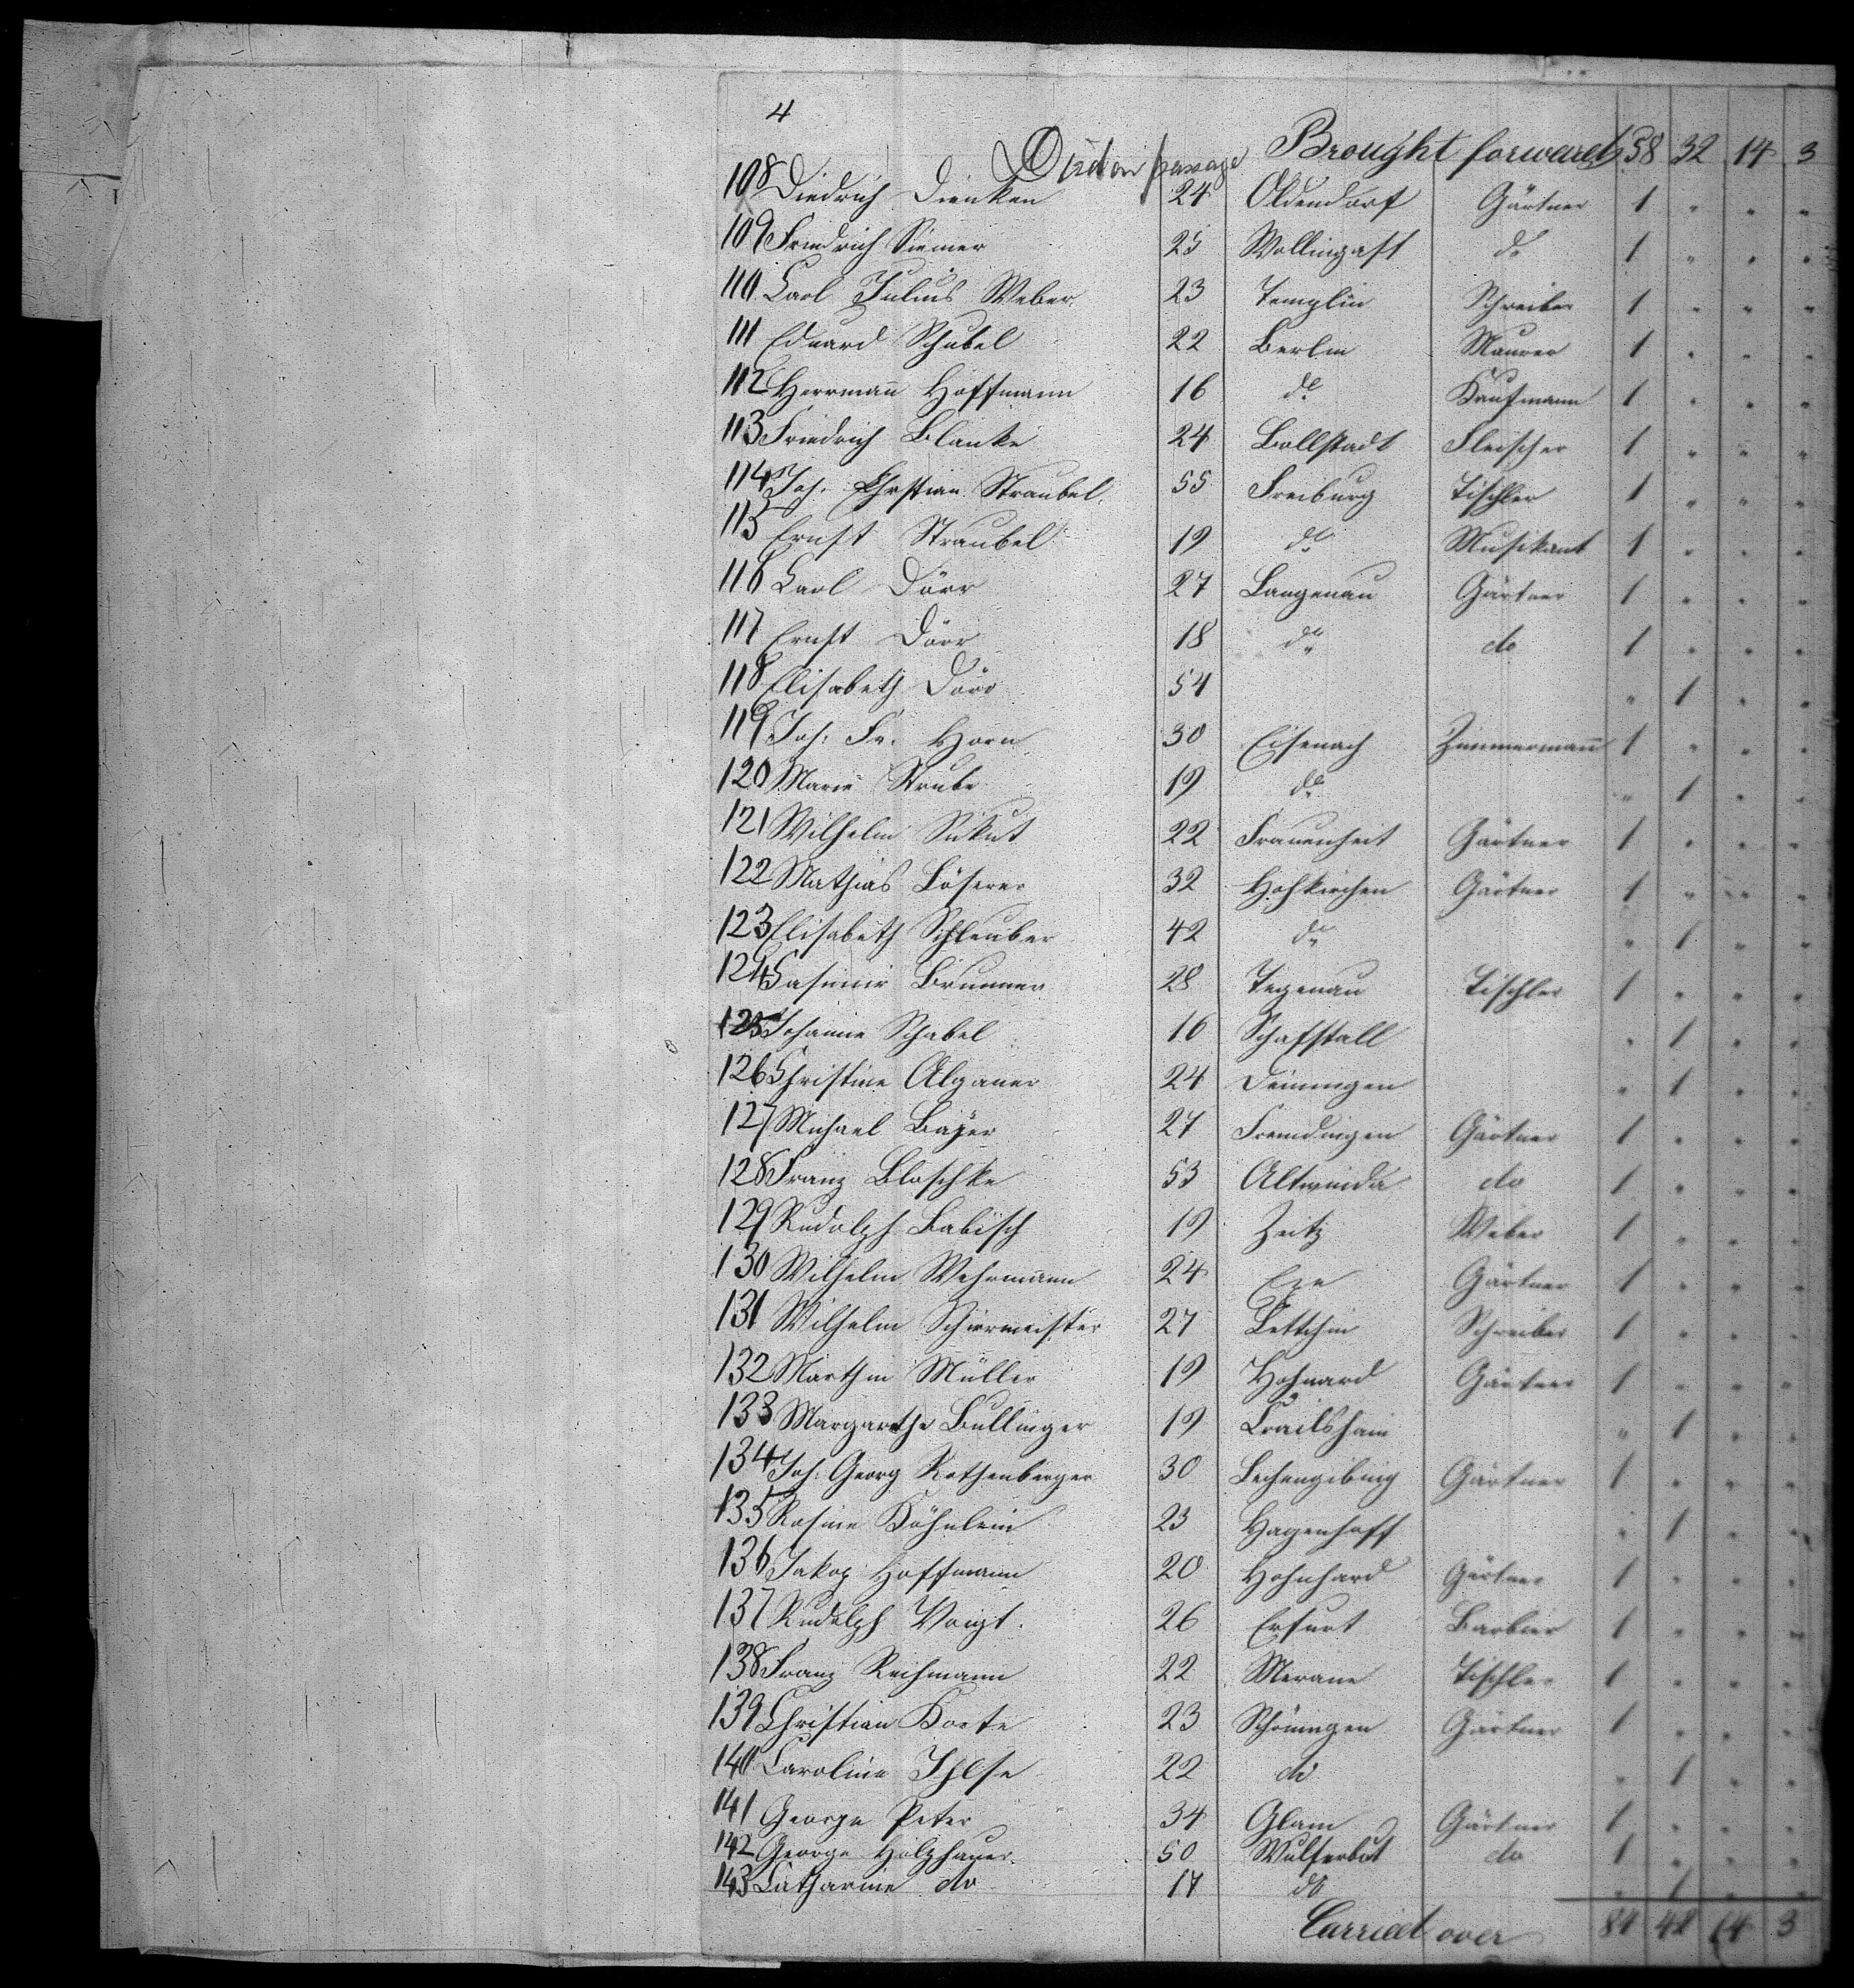 4
Died on passage Brought forward 58 32 14 3
108 Diedrich Dienken 24 Oldendorf Gärtner 1 " " "
109 Friedrich Siemer 25 Wollingast do 1 " " "
110 Carl Julius Weber 23 Templin Schreiber 1 " " "
111 Eduard Schubel 22 Berlin Maurer 1 " " "
112 Herrmann Hoffmann 16 do Kaufmann 1 " " "
113 Friedrich Blanke 24 Bollstadt Fleischer 1 " " "
114 Joh. Chrstian Straubel 55 Freiburg Tischler 1 " " "
115 Ernst Straubel 19 do Musikant 1 " " "
116 Carl Dörr 27 Langenau Gärtner 1 " " "
117 Ernst Dörr 18 do do 1 " " "
118 Elisabeth Dörr 54 " 1 " "
119 Joh. Fr. Horn 30 Eisenach Zimmermann 1 " " "
120 Marie Strube 19 do " 1 " "
121 Wilhelm 22 Frauenheit Gärtner 1 " " "
122 Mathias Löserer 32 Hofkirchen Gärtner 1 " " "
123 Elisabeth Schleuber 42 do " 1 " "
124 Casimir Brunner 28 Tegenau Tischler 1 " " "
125 Johanne Schabel 16 Schafstall " 1 " "
126 Christine Alganer 24 Deiningen " 1 " "
127 Michael Bayer 27 Fremdingen Gärtner 1 " " "
128 Franz Bloschke 53 do 1 " " "
129 Rudolph Babisch 19 Zeitz Weber 1 " " "
130 Wilhelm Wehrmann 24 Gärtner 1 " " "
131 Wilhelm Schirrmeister 27 Lettchin Schreiber 1 " " "
132 Marthin Müller 19 Gärtner 1 " " "
133 Margarethe Bullinger 19 Crailshaim " 1 " "
134 Joh. Georg Rothenberger 30 Gärtner 1 " " "
135 Rosine Köhnlein 23 Hagenhoff " 1 " "
136 Jakop Hoffmann 20 Hohnhard Gärtner 1 " " "
137 Rudolph Voigt. 26 Erfurt Barbier 1 " " "
138 Franz Reichmann 22 Merane Tischler 1 " " "
139 Christian Korte 23 Schöningen Gärtner 1 " " "
140 Caroline Ihlse 22 do " 1 " "
141 George Peter 34 Glam Gärtner 1 " " "
142 George Holzhauer 50 Wulferbut do 1 " " "
143 Catharine do 17 do " 1 " "
Carried over 84 42 14 3